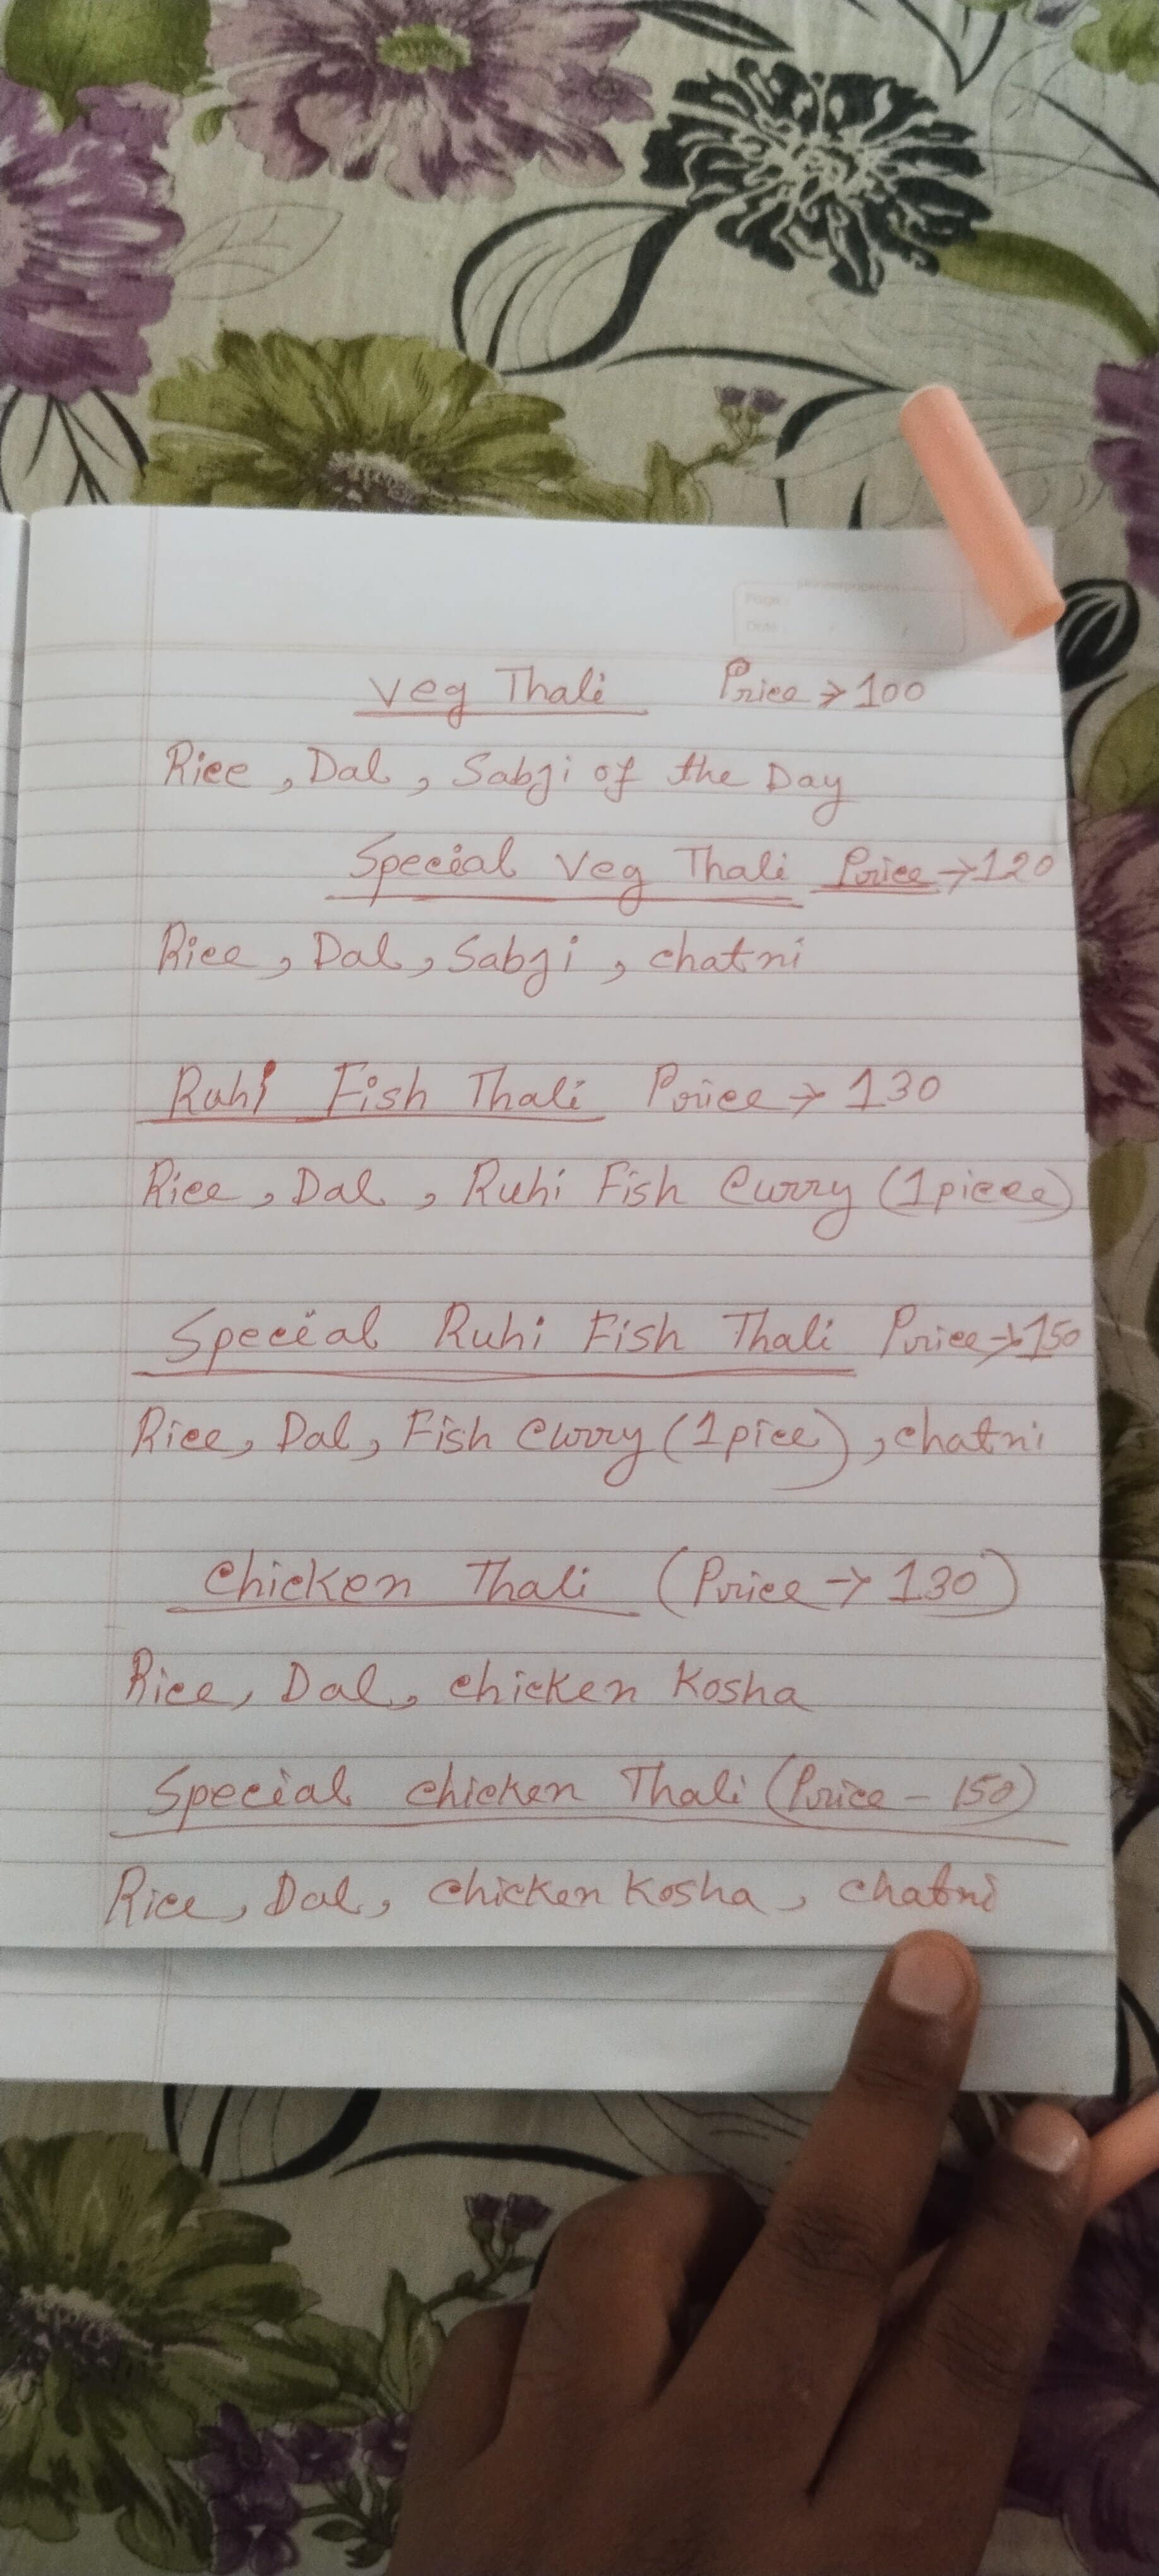 Page :
Date : / /
Veg Thali Price → 100
Rice, Dal, Sabji of the Day
Special Veg Thali Price → 120
Rice, Dal, Sabji, chatni
Ruhi Fish Thali Price → 130
Rice, Dal, Ruhi Fish Curry (1 piece)
Special Ruhi Fish Thali Price → 150
Rice, Dal, Fish Curry (1 pice), chatni
Chicken Thali (Price → 130)
Rice, Dal, chicken Kosha
Special chicken Thali (Price - 150)
Rice, Dal, chicken Kosha, chatni